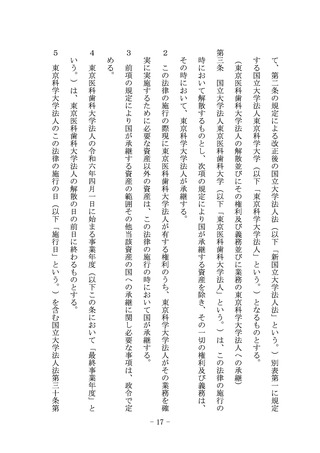 て、第二条の規定による改正後の国立大学法人法（以下「新国立大学法人法」という。）別表第一に規定
する国立大学法人東京科学大学（以下「東京科学大学法人」という。）となるものとする。
（東京医科歯科大学法人の解散並びにその権利及び義務並びに業務の東京科学大学法人への承継）
第三条　国立大学法人東京医科歯科大学（以下「東京医科歯科大学法人」という。）は、この法律の施行の
時において解散するものとし、次項の規定により国が承継する資産を除き、その一切の権利及び義務は、
その時において、東京科学大学法人が承継する。
２　この法律の施行の際現に東京医科歯科大学法人が有する権利のうち、東京科学大学法人がその業務を確
実に実施するために必要な資産以外の資産は、この法律の施行の時において国が承継する。
３　前項の規定により国が承継する資産の範囲その他当該資産の国への承継に関し必要な事項は、政令で定
める。
４　東京医科歯科大学法人の令和六年四月一日に始まる事業年度（以下この条において「最終事業年度」と
いう。）は、東京医科歯科大学法人の解散の日の前日に終わるものとする。
５　東京科学大学法人のこの法律の施行の日（以下「施行日」という。）を含む国立大学法人法第三十条第
- 17 -